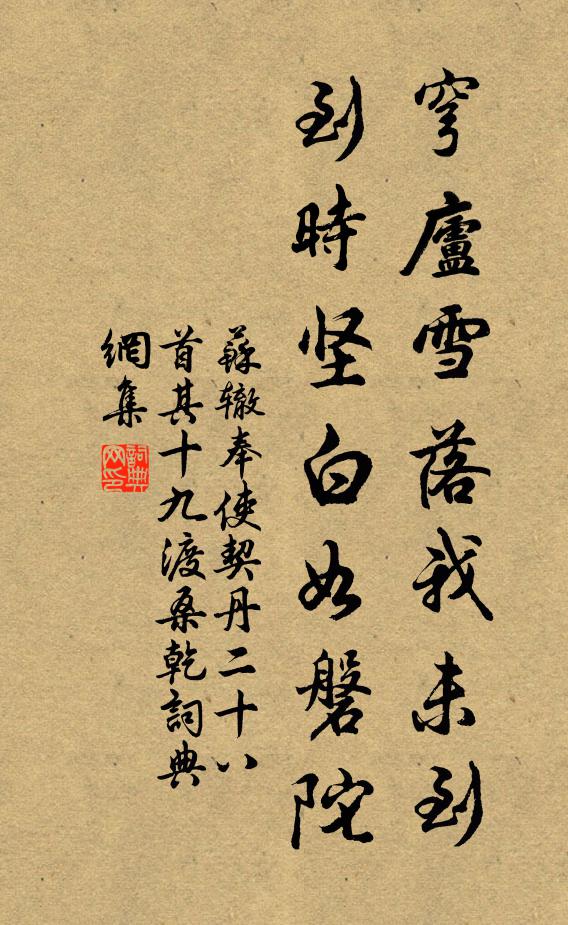 穹廬雪落我未到
到時坚白如磐陀
蘇辙奉使契丹二十八
首其十九渡桑乾詞典
網集
詞典网印